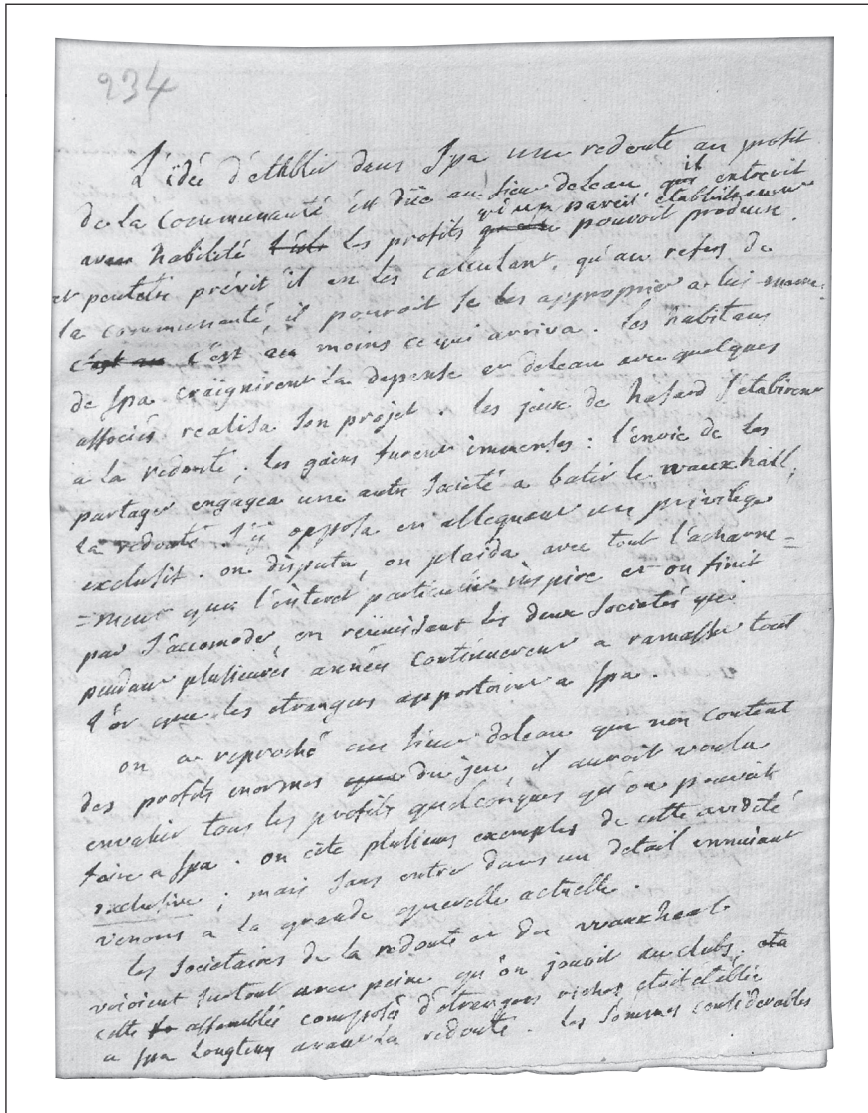 234
L'idée d'etablir dans Spa une redoute au profit
de la communauté est düe au Sieur deleau qui il entrevit
avec habileté les profits qu'un pareil etablissement pouvoit produire.
et peutetre prévit il en les calculant, qu'au refus de
la communauté, il pouvoit se les approprier a lui même.
c'est au c'est au moins ce qui arriva. les habitans
de Spa craignirent la depense et deleau avec quelques
associés realisa son projet. les jeux de hasard s'etablirent
a la redoute, les gains furent immenses : l'envie de les
partager engagea une autre Societé a batir le wauxhall,
la redoute s'y opposa en alleguant un privilege
exclusif. on disputa, on plaida avec tout l'acharne=
=ment que l'interet particulier inspire et on finit
par s'accomoder en reünissant les deux Societés qui
pendant plusieures années continuerent a ramasser tout
l'or que les etrangers apportoient a Spa.
on a reproché au Sieur deleau que non content
des profits enormes que du jeu, il auroit voulu
envahir tous les profits quelconques qu'on pouvoit
faire a Spa. on cite plusieurs exemples de cette avidité
exclusive ; mais sans entrer dans un detail ennuiant
venons a la grande querelle actuelle.
les Societaires de la redoute et du wauxhal
voioient surtout avec peine qu'on jouoit au clubs, eta
cette assemblée composé d'etrangers riches etoit etablie
a Spa longtems avant la redoute. les Sommes considerables